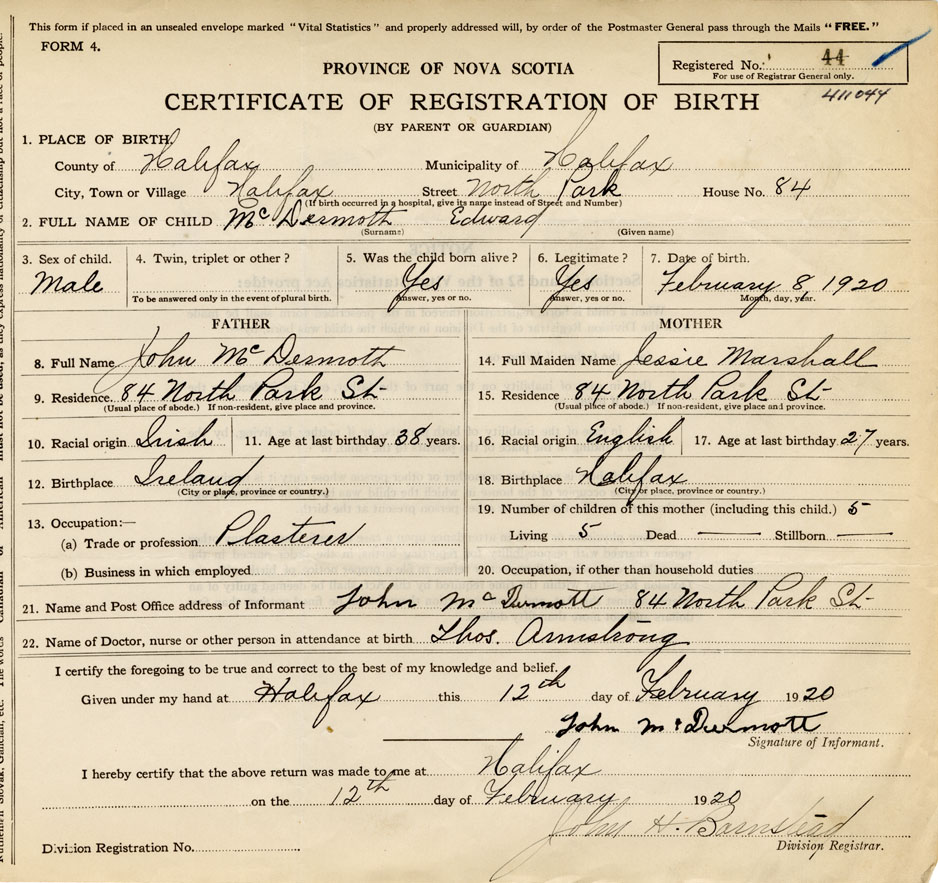 This form if placed in an unsealed envelope marked "Vital Statistics" and properly addressed will, by order of the Postmaster General pass through the Mails "FREE."
FORM 4.
Registered No. 44
For use of Registrar General only.
411044
PROVINCE OF NOVA SCOTIA
CERTIFICATE OF REGISTRATION OF BIRTH
(BY PARENT OR GUARDIAN)
1. PLACE OF BIRTH
County of Halifax Municipality of Halifax
City, Town or Village Halifax Street North Park House No. 84
(If birth occurred in a hospital, give its name instead of Street and Number)
2. FULL NAME OF CHILD McDermoth Edward
(Surname) (Given name)
3. Sex of child. 4. Twin, triplet or other? 5. Was the child born alive? 6. Legitimate? 7. Date of birth.
Male Yes Yes February 8, 1920
To be answered only in the event of plural birth. Answer, yes or no. Answer, yes or no. Month, day, year.
FATHER
8. Full Name John McDermoth
9. Residence. 84 North Park St
(Usual place of abode.) If non-resident, give place and province.
10. Racial origin Irish 11. Age at last birthday 38 years.
12. Birthplace Ireland
(City or place, province or country.)
13. Occupation:—
(a) Trade or profession Plasterer
(b) Business in which employed
MOTHER
14. Full Maiden Name Jessie Marshall
15. Residence 84 North Park St
(Usual place of abode.) If non-resident, give place and province.
16. Racial origin English 17. Age at last birthday 27 years.
18. Birthplace Halifax
(City or place, province or country.)
19. Number of children of this mother (including this child.) 5
Living 5 Dead — Stillborn —
20. Occupation, if other than household duties
21. Name and Post Office address of Informant John McDermott 84 North Park St
22. Name of Doctor, nurse or other person in attendance at birth. Thos. Armstrong
I certify the foregoing to be true and correct to the best of my knowledge and belief.
Given under my hand at Halifax this 12th day of February 1920
John McDermott
Signature of Informant.
I hereby certify that the above return was made to me at Halifax
on the 12th day of February 1920
John H. Barnstead
Division Registration No. Division Registrar.